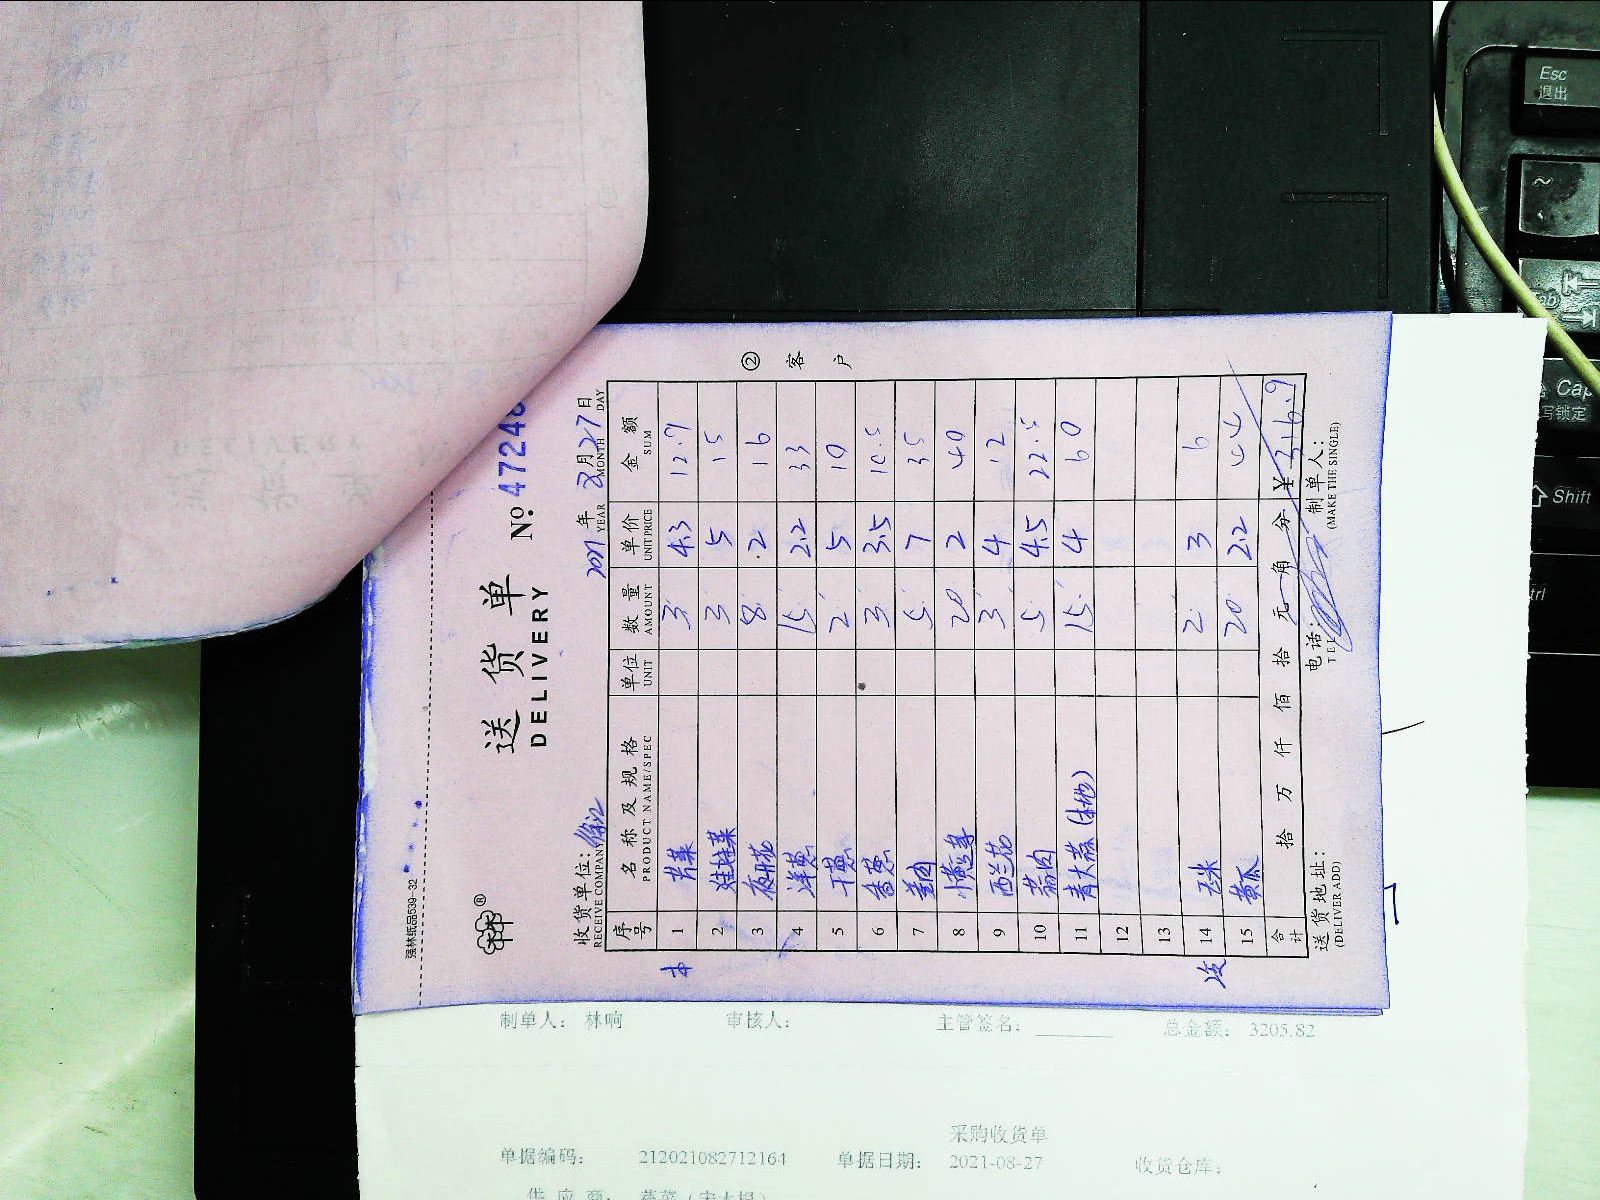 强林纸品539-32
送货单
DELIVERY
№ 47248
收货单位:
RECEIVE COMPANY
2021 年 8 月 27 日
YEAR MONTH DAY
② 客户
序号 名称及规格 单位 数量 单价 金额
PRODUCT NAME/SPEC UNIT AMOUNT UNIT PRICE SUM
1 芹菜 3 4.3 12.9
2 娃娃菜 3 5 15
3 夜开花 8 2 16
4 洋葱 15 2.2 33
5 干葱 2 5 10
6 香葱 3 3.5 10.5
7 姜肉 5 7 35
8 小黄豆芽 20 2 40
9 西兰花 3 4 12
10 蒜肉 5 4.5 22.5
11 青大蒜(本地) 15 4 60
12
13
14 玉米 2 3 6
15 黄瓜 20 2.2 44
合计 拾 万 仟 佰 拾 元 角 分 ¥ 316.9
送货地址: 电话: 制单人:
(DELIVER ADD) TEL (MAKE THE SINGLE)
制单人: 林响 审核人: 主管签名: 总金额: 3205.82
采购收货单
单据编码: 212021082712164 单据日期: 2021-08-27 收货仓库:
供应商:
Esc
退出
~
Tab
Cap
写锁定
Shift
trl